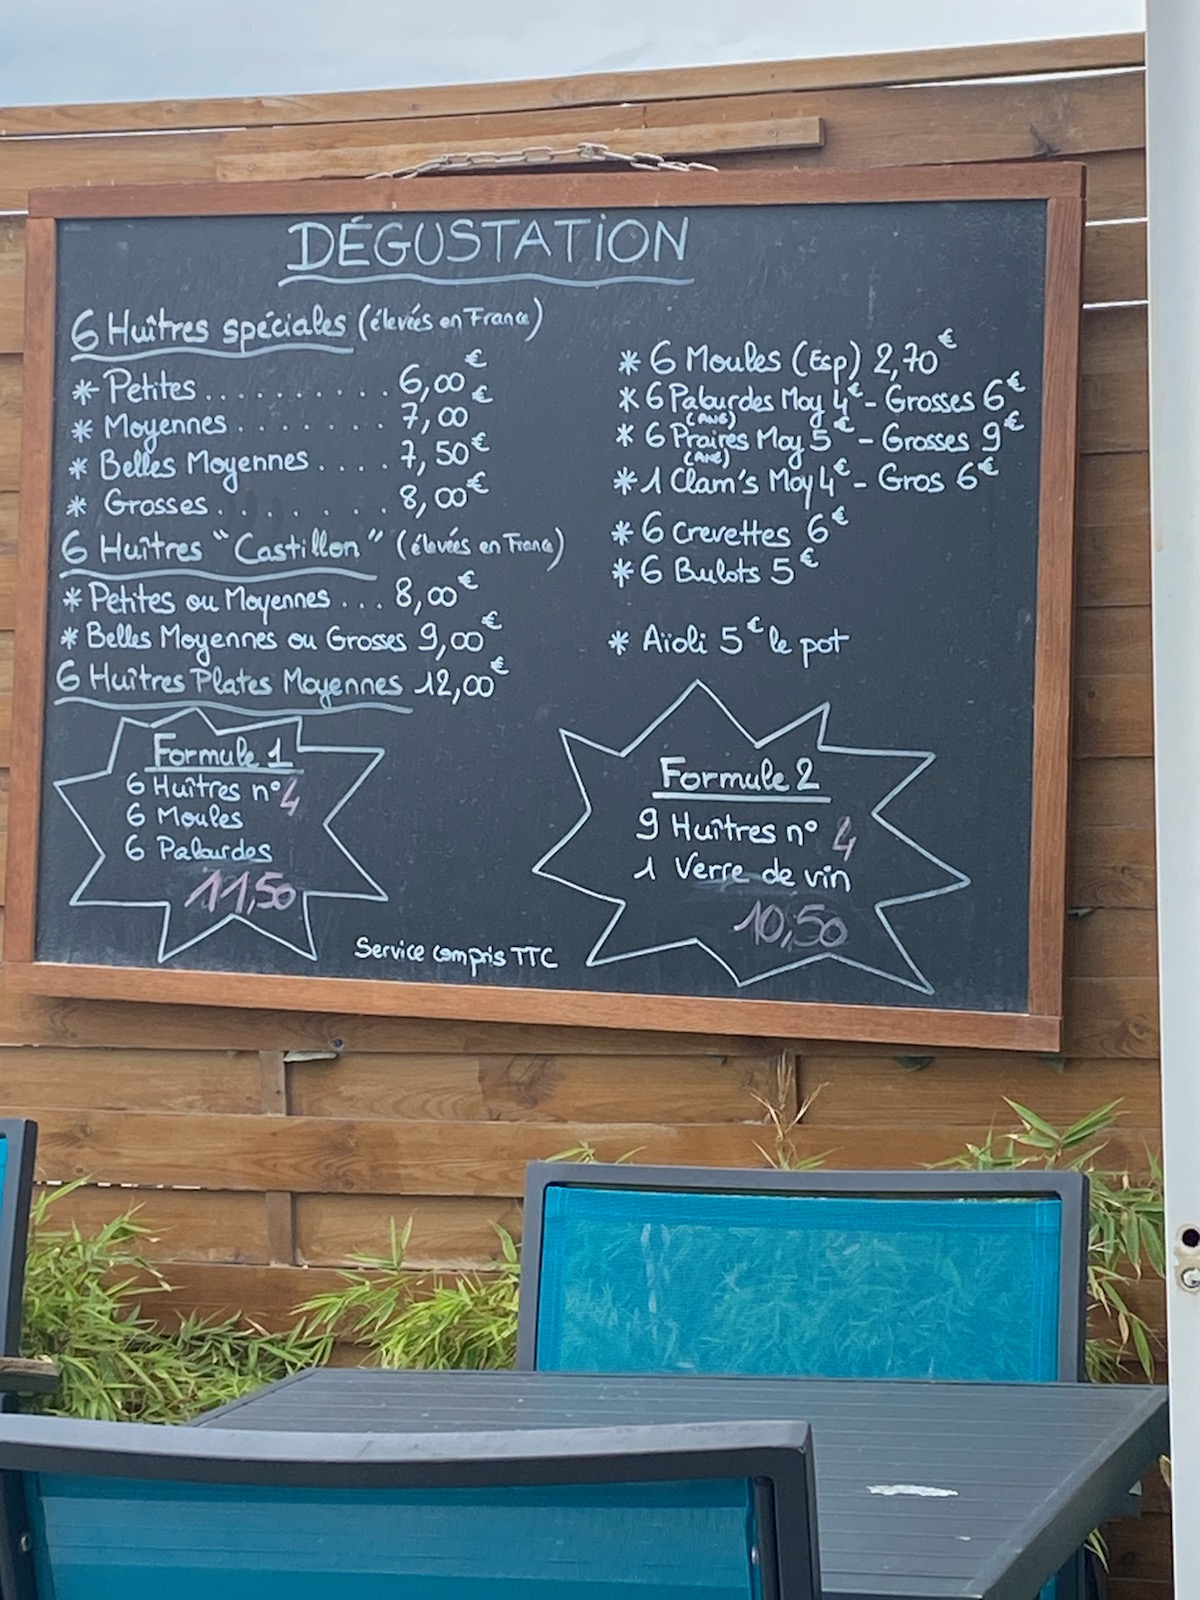 DÉGUSTATION
6 Huîtres spéciales (élevées en France)
* Petites .......... 6,00€
* Moyennes ....... 7,00€
* Belles Moyennes .... 7,50€
* Grosses ........ 8,00€
6 Huîtres "Castillon" (élevées en France)
* Petites ou Moyennes ... 8,00€
* Belles Moyennes ou Grosses 9,00€
6 Huîtres Plates Moyennes 12,00€
* 6 Moules (Esp) 2,70€
* 6 Palourdes Moy 4€ - Grosses 6€
(ANG)
* 6 Praires Moy 5€ - Grosses 9€
(ANG)
* 1 Clam's Moy 4€ - Gros 6€
* 6 Crevettes 6€
* 6 Bulots 5€
* Aïoli 5€ le pot
Formule 1
6 Huîtres n° 4
6 Moules
6 Palourdes
11,50
Formule 2
9 Huîtres n° 4
1 Verre de vin
10,50
Service compris TTC